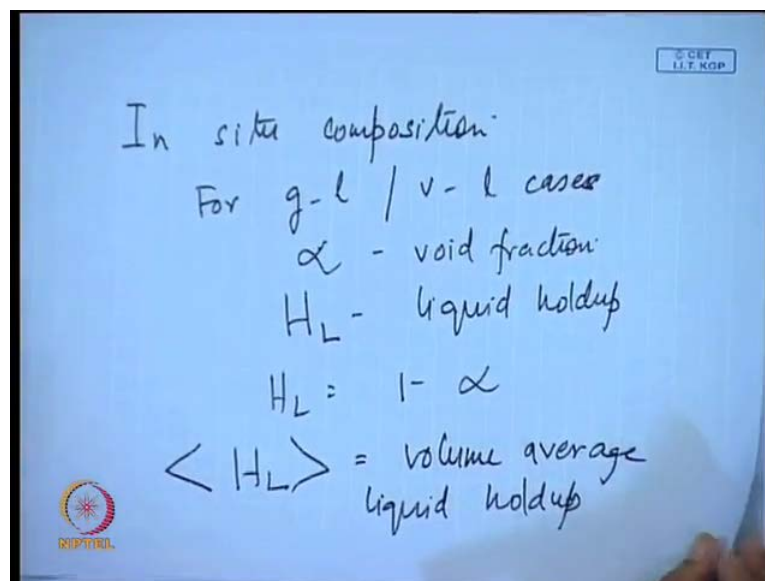 © CET
I.I.T. KGP
In situ composition.
For g-l / v-l cases
α - void fraction.
H_L - liquid holdup
H_L = 1- α
< H_L > = volume average
liquid holdup
NPTEL